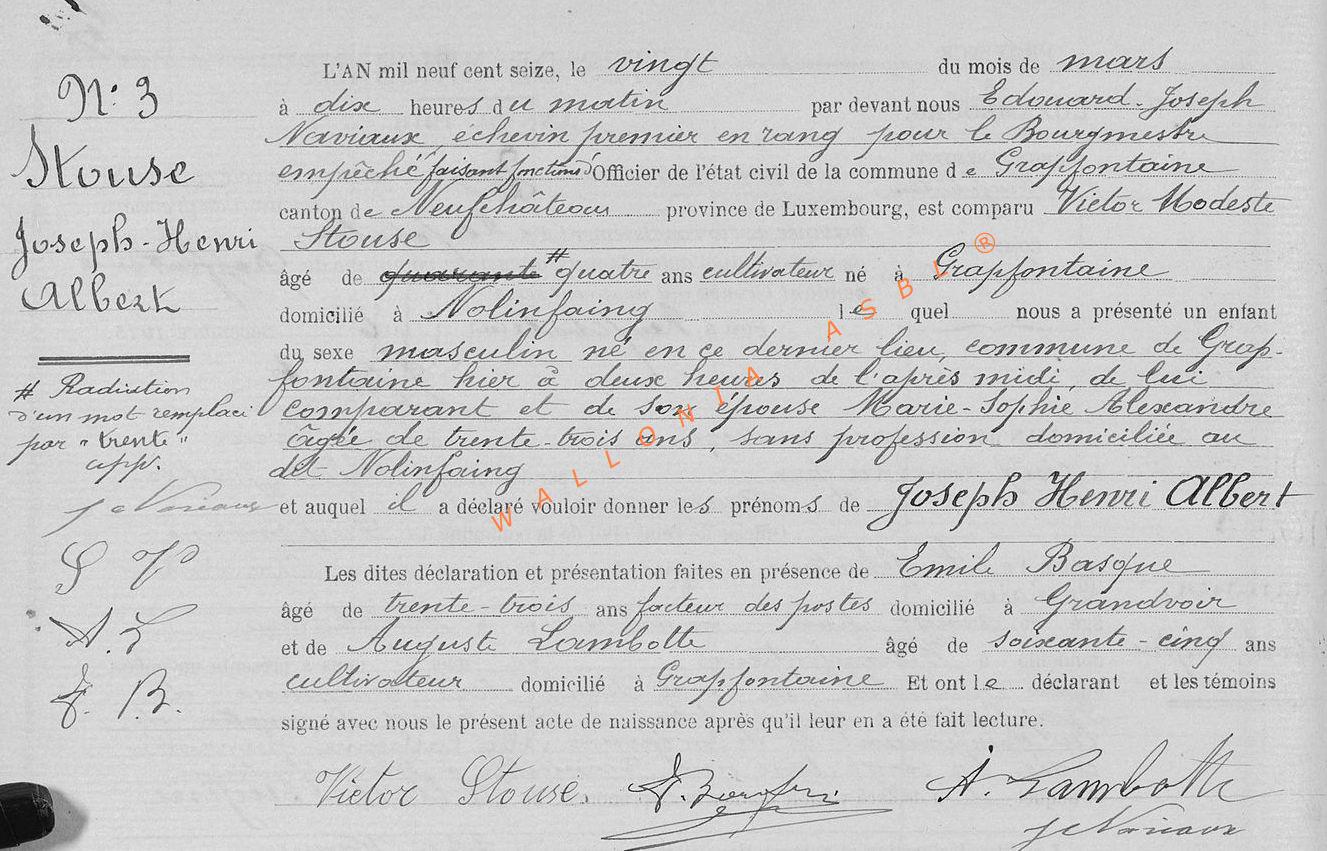 N° 3
Stouse
Joseph-Henri
Albert
# Radiation
d'un mot remplacé
par "trente"
app.
L'AN mil neuf cent seize, le vingt du mois de mars
à dix heures du matin par devant nous Edouard-Joseph
Naviaux, échevin premier en rang pour le Bourgmestre
empêché faisant fonctions d'Officier de l'état civil de la commune de Grapfontaine
canton de Neufchâteau province de Luxembourg, est comparu Victor Modeste
Stouse
âgé de quarante # quatre ans cultivateur né à Grapfontaine
domicilié à Nolinfaing lequel nous a présenté un enfant
du sexe masculin né en ce dernier lieu, commune de Grap-
fontaine hier à deux heures de l'après midi, de lui
comparant et de son épouse Marie-Sophie Alexandre
âgée de trente-trois ans, sans profession domiciliée au
dit Nolinfaing
et auquel il a déclaré vouloir donner les prénoms de Joseph Henri Albert
Les dites déclaration et présentation faites en présence de Emile Basque
âgé de trente-trois ans facteur des postes domicilié à Grandvoir
et de Auguste Lambotte âgé de soixante-cinq ans
cultivateur domicilié à Grapfontaine Et ont le déclarant et les témoins
signé avec nous le présent acte de naissance après qu'il leur en a été fait lecture.
A. L
B.
Victor Stouse.
A. Lambotte
WALLONIA ASBL ®